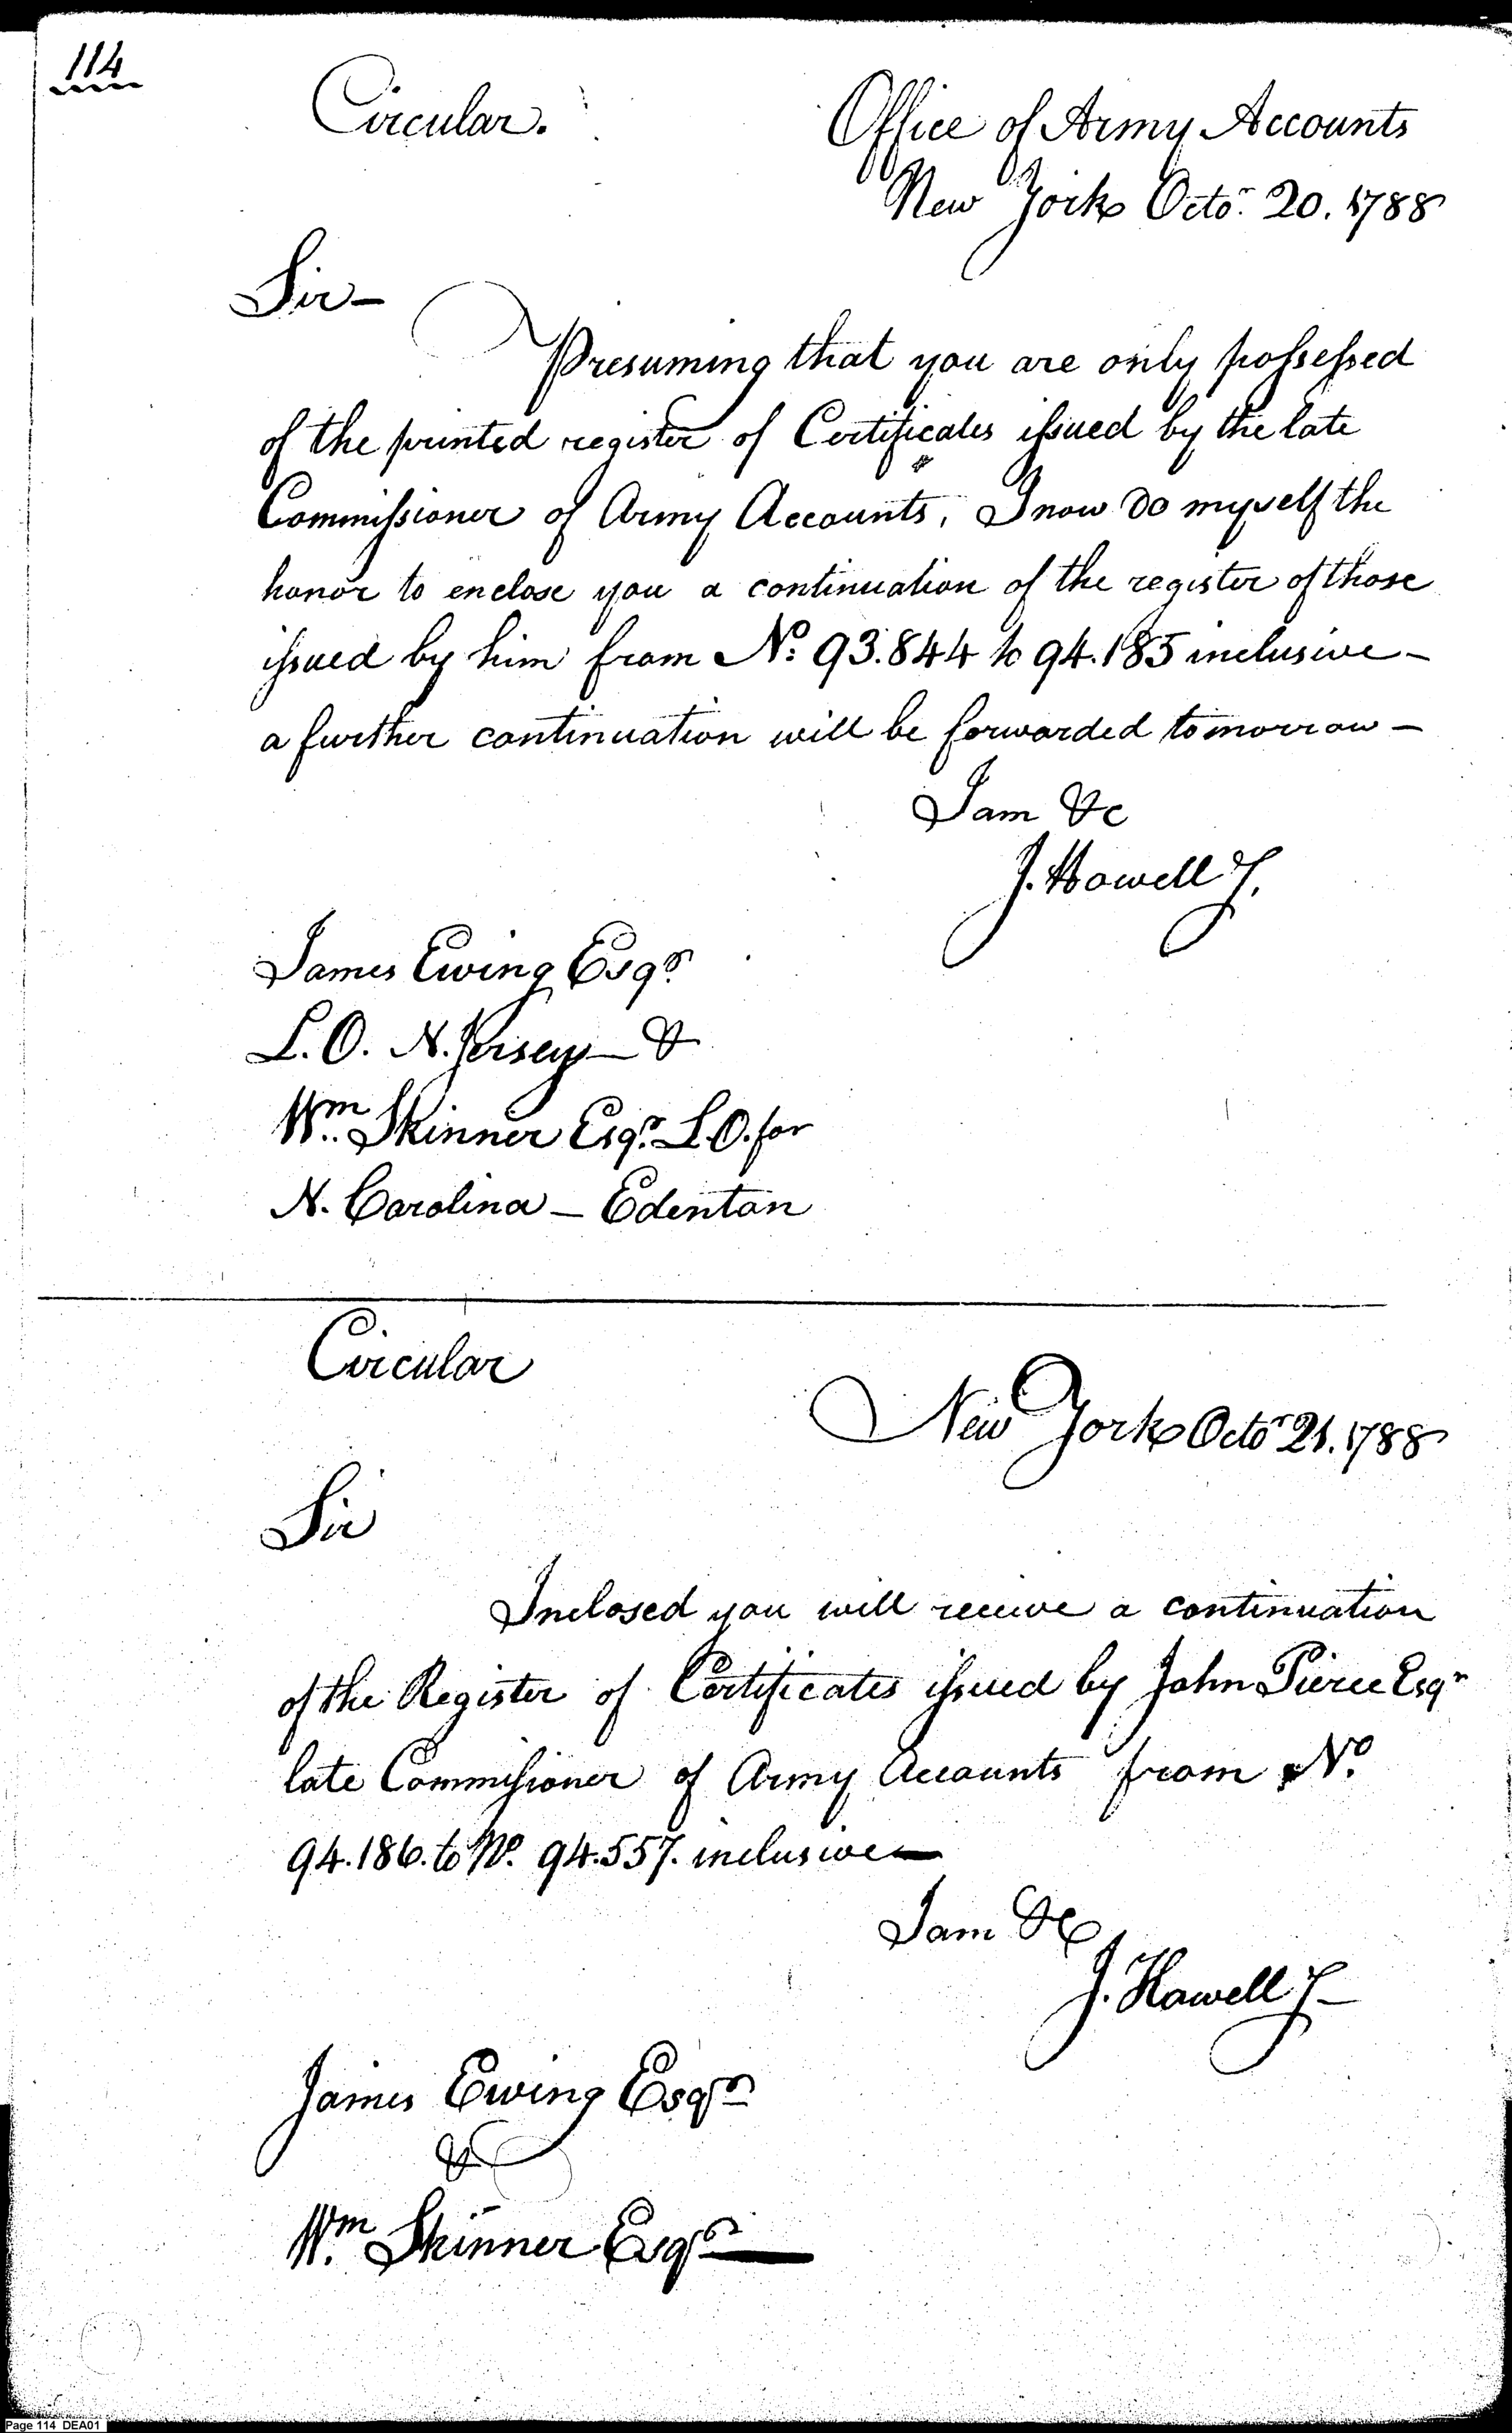 114
Circular.
Office of Army Accounts
New York Octor. 20. 1788
Sir—
Presuming that you are only possessed
of the printed register of Certificates issued by the late
Commissioner of Army Accounts, I now do myself the
honor to enclose you a continuation of the register of those
issued by him from No. 93.844 to 94.185 inclusive—
a further continuation will be forwarded tomorrow—
I am &c
J. Howell J.
James Ewing Esqr
L.O. N. Jersey— &
Wm. Skinner Esqr. L.O. for
N. Carolina — Edenton
Circular
New York Octor 21. 1788
Sir
Inclosed you will receive a continuation
of the Register of Certificates issued by John Pierce Esqr
late Commissioner of Army Accounts from No.
94.186. to No. 94.557. inclusive—
I am &c
J. Howell J—
James Ewing Esqr
&
Wm. Skinner Esqr—
Page 114 DEA01